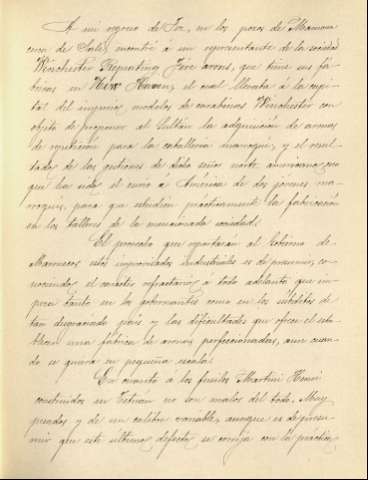 A mi regreso de Fez, en los pozos de Mamova
cerca de Salé, encontré á un representante de la sociedad
Winchester Repeating Fire arms, que tiene sus fá-
bricas en New Haven, el cual llevaba á la capi-
tal del imperio modelos de carabinas Winchester con
objeto de proponer al Sultán la adquisición de armas
de repetición para la caballería marroquí, y el resul-
tado de las gestiones de dicho señor norte americano
que ha sido el envio a América de dos jóvenes ma-
rroquís, para que estudien prácticamente la fabricación
en los talleres de la mencionada sociedad.
El provecho que reportarán al Gobierno de
Marruecos estos improvisados industriales es de presumir, co-
nociendo el carácter refractario a todo adelanto que im-
pera tanto en los gobernantes como en los súbditos de
tan desgraciado país y las dificultades que ofrece el esta-
blecer una fábrica de armas perfeccionadas, aun cuan-
do se quiera en pequeña escala.
En cuanto á los fusiles Martini Henri
construidos en Tetuan no son malos del todo. Muy
pesados y de un calibre variable, aunque es de presu-
mir que este ultimo defecto se corrija con la práctica,